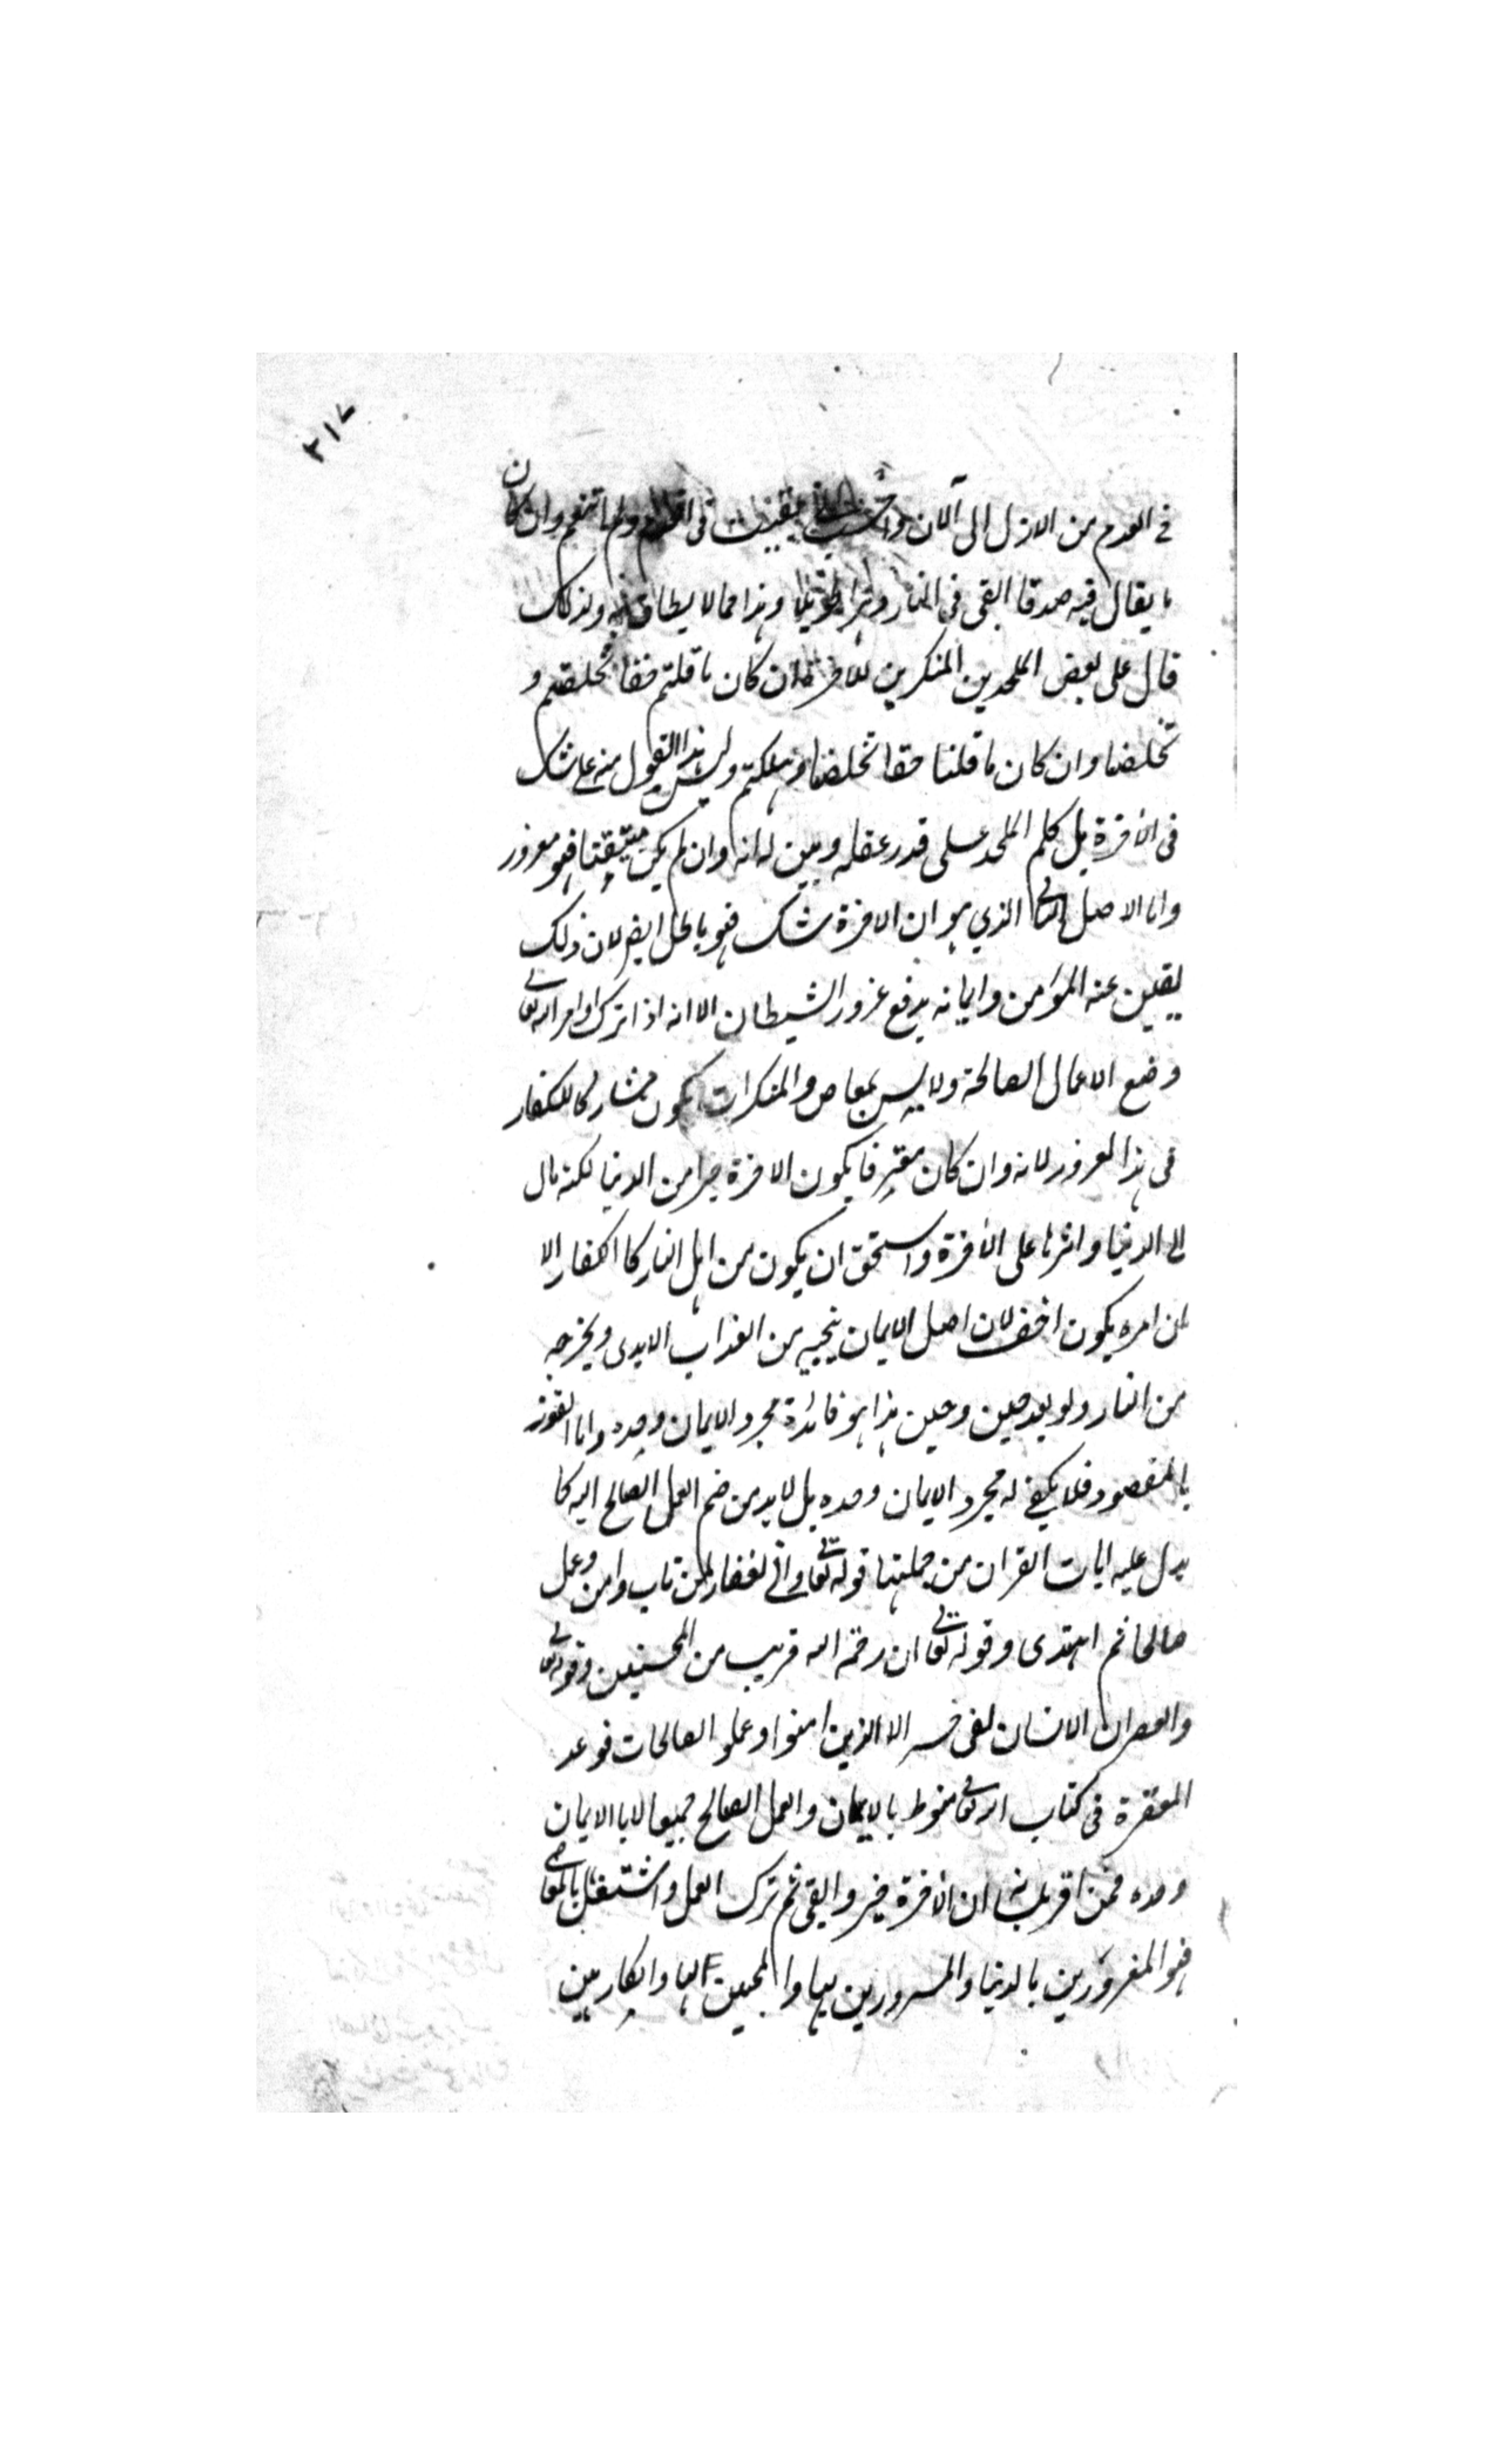 ٣١٧
في العدم من الازل الى آلان بقيت في ولم اتنعم وان كان
ما يقال فيه صدقا ابقى في النار وهذا مما لا يطاق به ولذلك
قال على لبعض الملحدين المنكرين للاخرة ان كان ما قلتم حقا تخلصتم و
تخلصنا وان كان ما قلنا حقا تخلصنا وهلكتم وليس هذا القول منه على شك
في الآخرة بل كلم الملحد على قدر عقله وبين له انه وان لم يكن متيقنا فهو مغرور
واما الاصل الذي هو ان الاخرة شك فهو باطل ايضا لان ذلك
يقين عند المؤمن وايمانه يدفع غرور الشيطان الا انه اذا ترك اوامر الله تعالى
وضيع الاعمال الصالحة ولابس بمعاص والمنكرات يكون مشاركا للكفار
في هذا لغرور لانه وان كان معترفا بكون الاخرة خيرا من الدنيا لكنه مال
الى الدنيا واثرها على الأخرة واستحق ان يكون من اهل النار كا الكفار الا
ان امره يكون اخف لان اصل الايمان ينجيه من العذاب الابدى ويخرجه
من النار ولو بعد حين وحين هذا هو فائدة مجرد الايمان وحده واما الفوز
بالمقصود فلا يكفي له مجرد الايمان وحده بل لابد من ضم العمل الصالح اليه كما
يدل عليه ايات القران من جملتها قوله تعالى واني لغفار لمن تاب وامن وعمل
صالحا ثم اهتدى وقوله تعالى ان رحمة الله قريب من المحسنين وقوله تعالى
والعصر ان الانسان لفى خسر الا الذين امنوا وعملو الصالحات فوعد
المغفرة في كتاب الله تعالى منوط بالايمان والعمل الصالح جميعا لا با الايمان
وحده فمن اقر بلسانه ان الأخرة خير وابقى ثم ترك العمل واشتغل بالمعاصى
فهو المغرورين بالدنيا والمسرورين بها والمحبين لها والكارهين